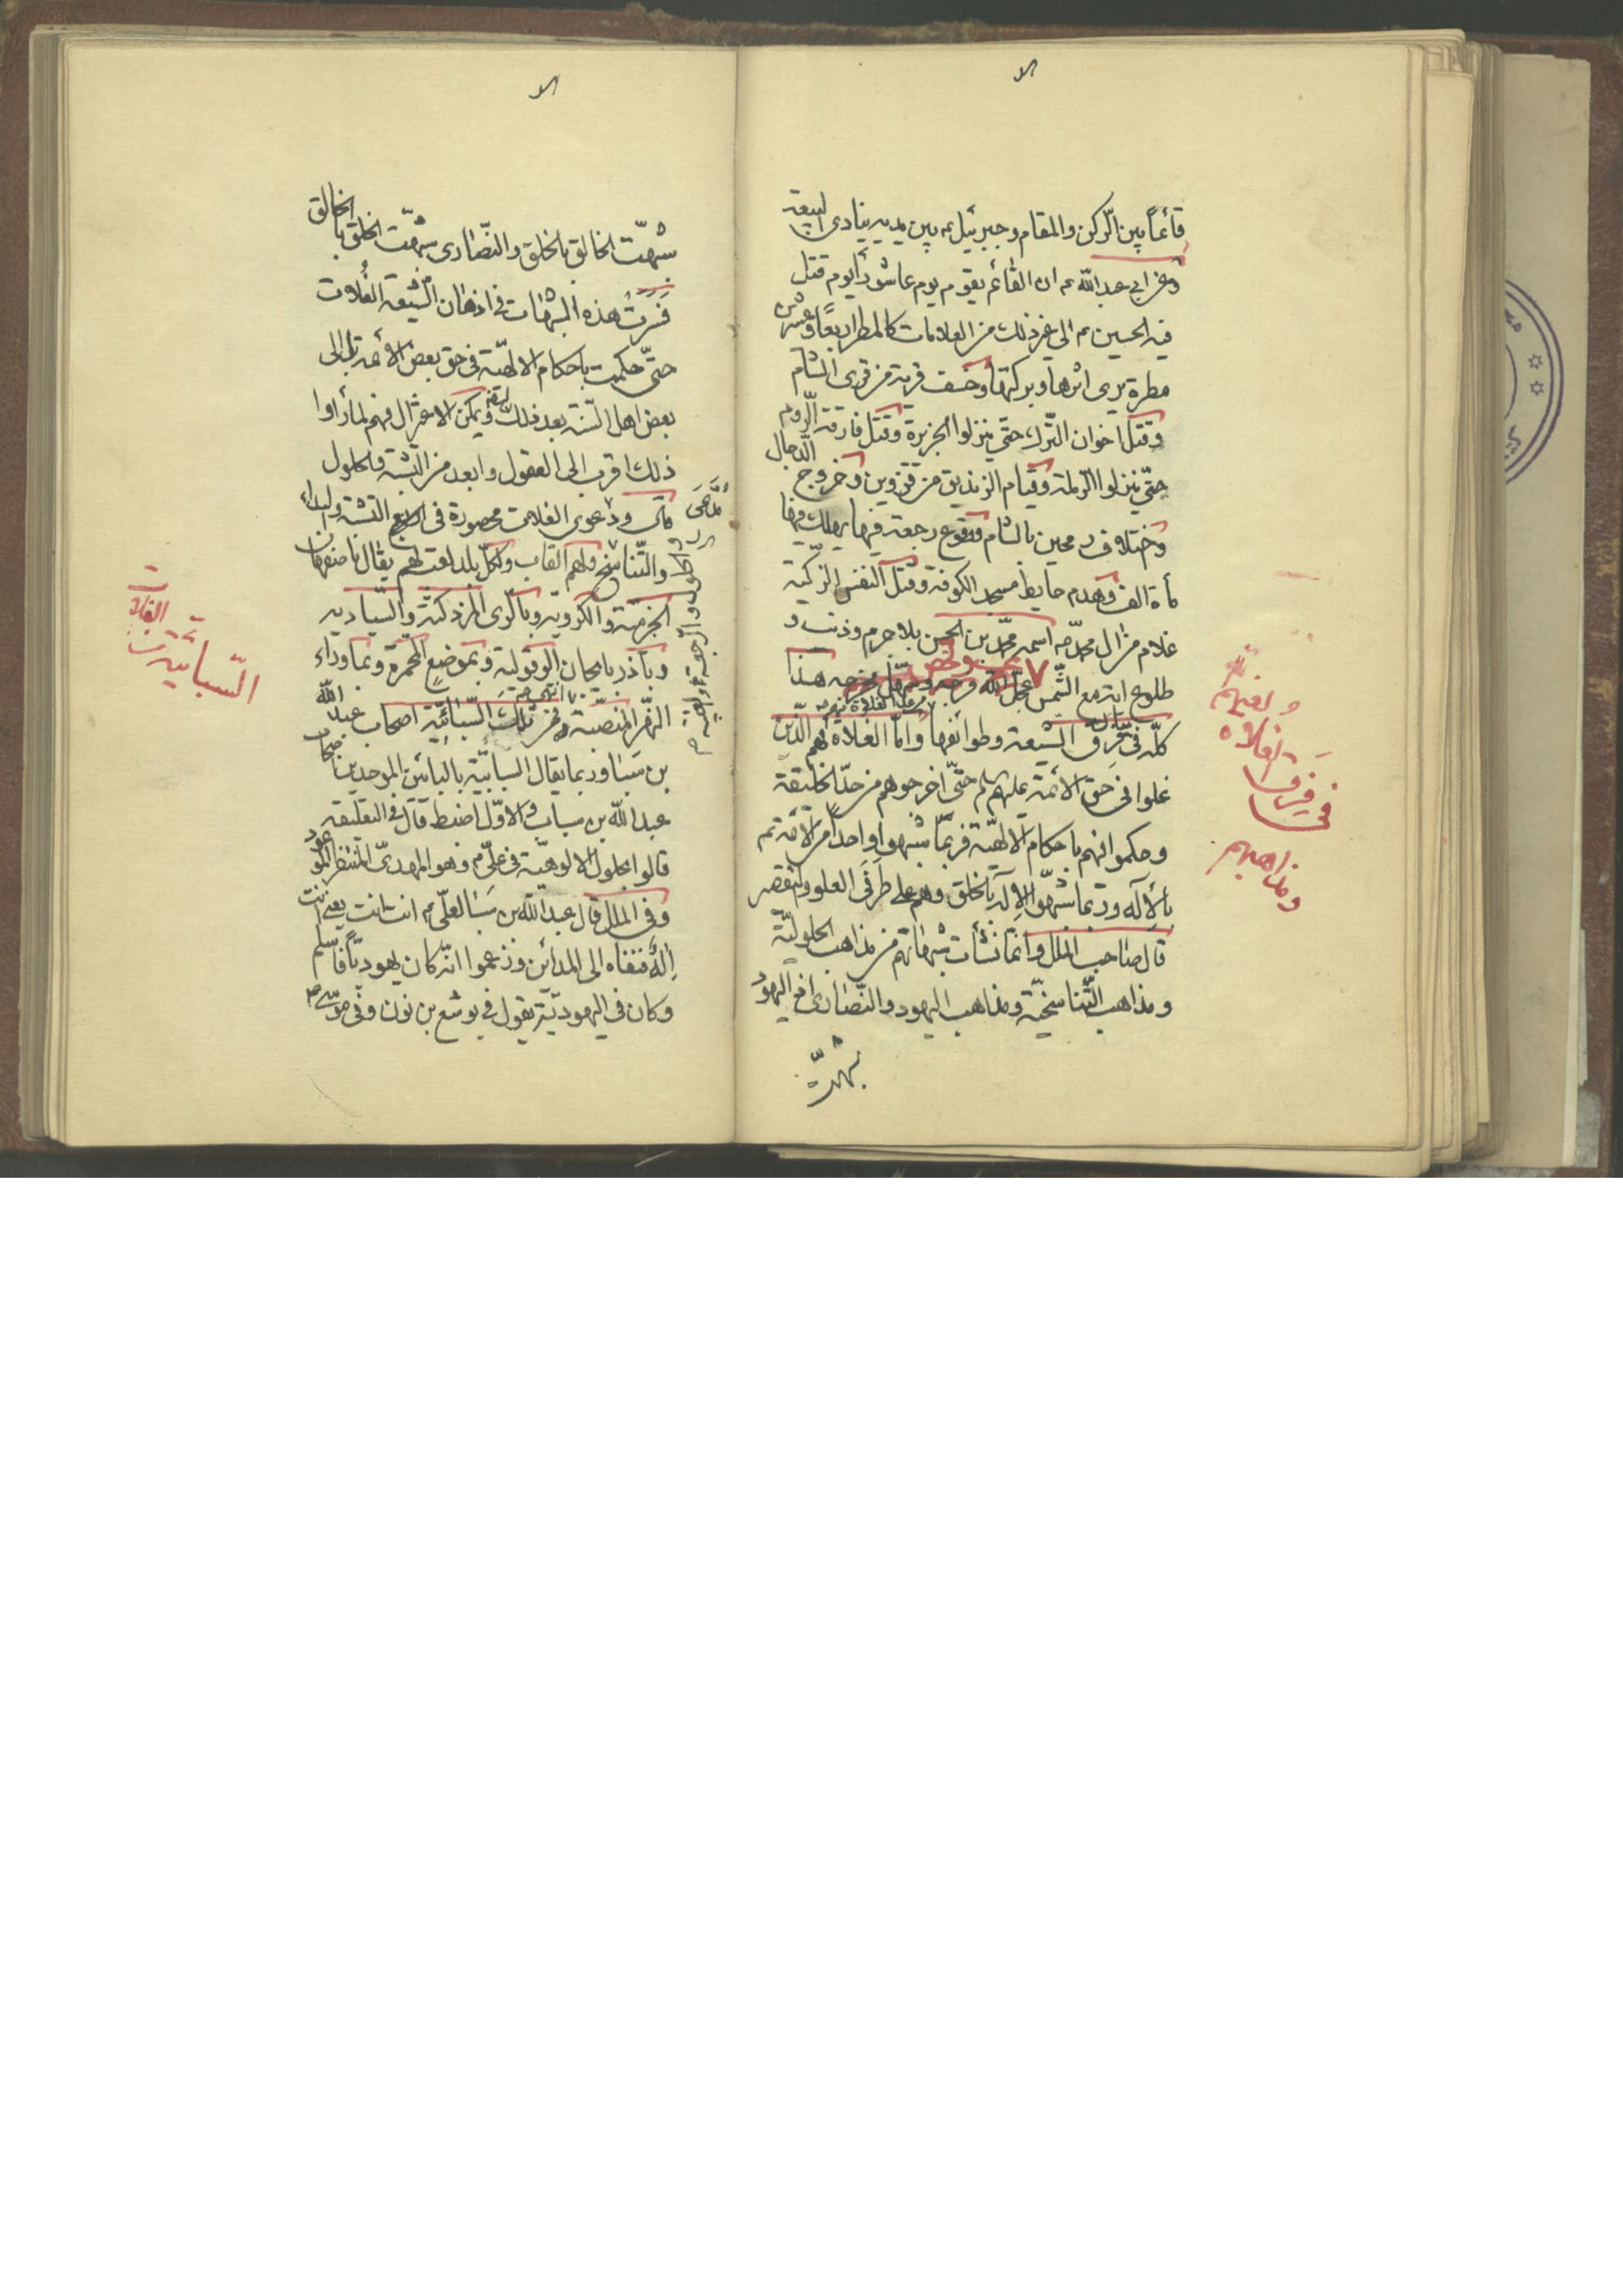 قائماً بين الركن والمقام وجبرئيل ع بين يديه ينادي البيعة
وعن ابي عبد الله ع ان القائم يقوم يوم عاشورا يوم قتل
فيه الحسين ع الى غير ذلك من العلامات كالمطر اربعاً وعشرين
مطرة يرى اثرها وبركتها وخسف قرية من قرى الشام
وقتل اخوان الترك حتى ينزلوا الجزيرة وقتل مارقة الروم
حتى ينزلوا الرملة وقيام الزنديق من قزوين وخروج الدجال
وختلاف رمحين بالشام ووقوع رجعة فيها يهلك فيها
مأة الف وهدم حايط مسجد الكوفة وقتل النفس الزكية
غلام من ال محمد ص اسمه محمد بن الحسن بلا جرم وذنب و
طلوع اية مع الشمس عجل الله فرجه وسهل مخرجه هذا
كله في فرق الشيعة وطوائفها واما الغلاة فهم الذين
غلوا في حق الائمة عليهم السلم حتى اخرجوهم من حد الخليقة
وحكموا فيهم باحكام الالهية فربما شبهوا واحداً من الائمة
بالآله وربما شبهوا الاله بالخلق وهم على طرفى الغلو والتقصير
قال صاحب الملل وانما نشأت شبهاتهم من مذاهب الحلولية
ومذاهب التناسخية ومذاهب اليهود والنصارى اذ اليهود
شبهت
في فرق الغلاه
ومذاهبهم
شبهت الخالق بالخلق والنصارى شبهت الخلق بالخالق
فسرت هذه الشبهات في اذهان الشيعة الغلات
حتى حكمت باحكام الالهية في حق بعض الائمة
بعض اهل السنة بعد ذلك ويمكن الاعتزال فيهم لما راوا
ذلك اقرب الى العقول وابعد من التشبه والحلول
ودعوى الغلات محصورة في اربع التشبه والبداء
والتناسخ ولهم القاب ولكل بلد لقب لهم يقال باصفهان
الخرمية والكروية وبالرى المزدكية والسبادية
وبآذربايجان الوبولية وبموضع المحمرة وبما وراء
النهر المبيضة فمن تلك السبائية اصحاب عبد الله
بن سبا وربما يقال السبابية بالبائين الموحدين اصحاب
عبد الله بن سباب والاول اضبط قال في التعليقة
قالوا بحلول الالوهية في على ع وهو المهدى المنتظر الموعود
وفي الملل قال عبد الله بن سبا لعلى ع انت انت يعني انت
اله فنفاه الى المدائن وزعموا انه كان يهودياً فاسلم
وكان في اليهودية يقول في يوشع بن نون وفي موسى ع
الغلات
السبائية